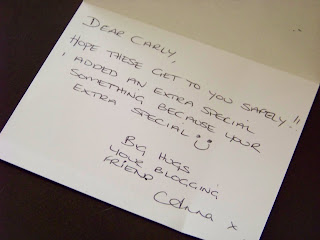 DEAR CARLY,
HOPE THESE GET TO YOU SAFELY!!
I ADDED AN EXTRA SPECIAL
SOMETHING BECAUSE YOUR
EXTRA SPECIAL
BIG HUGS
YOUR BLOGGING
FRIEND
x